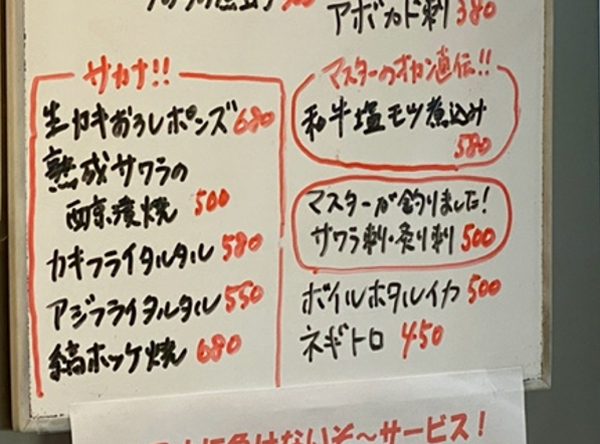 アボカド刺 380
サカナ!!
生カキおろしポンズ 680
熟成サワラの
西京漬焼 500
カキフライタルタル 580
アジフライタルタル 550
縞ホッケ焼 680
マスターのオカン直伝!!
和牛塩モツ煮込み
580
マスターが釣りました!
サワラ刺・炙り刺 500
ボイルホタルイカ 500
ネギトロ 450
負けないぞ〜サービス!